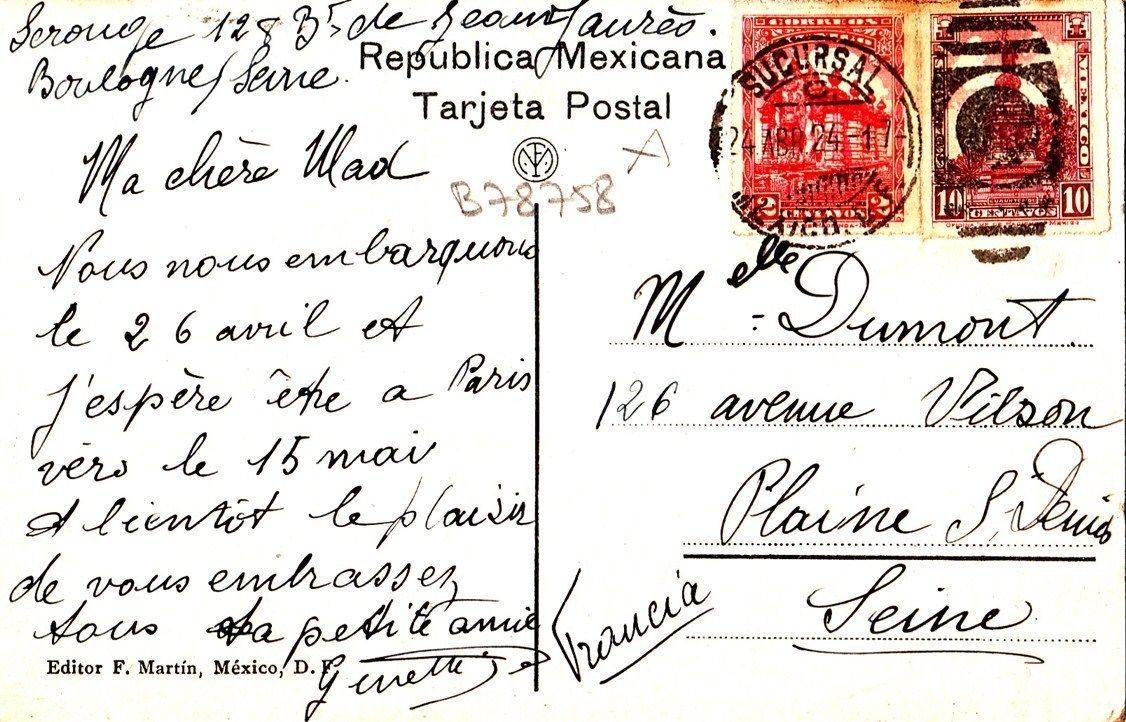 Serouge 128 Bd de Jean Jaurès.
Boulogne/Seine.
República Mexicana
Tarjeta Postal
Ma chère Mad
B78758
A
Nous nous embarquons
le 26 avril et
j'espère être a Paris
vers le 15 mai
A bientôt le plaisir
de vous embrasser
tous ta petite amie
Editor F. Martín, México, D. F.
CORREOS
MEXICO
SUCURSAL
24 ABR 24 -17-
2 CENTAVOS 2
10 CENTAVOS 10
Melle Dumont
126 avenue Vilson
Plaine St Denis
Seine
Francia